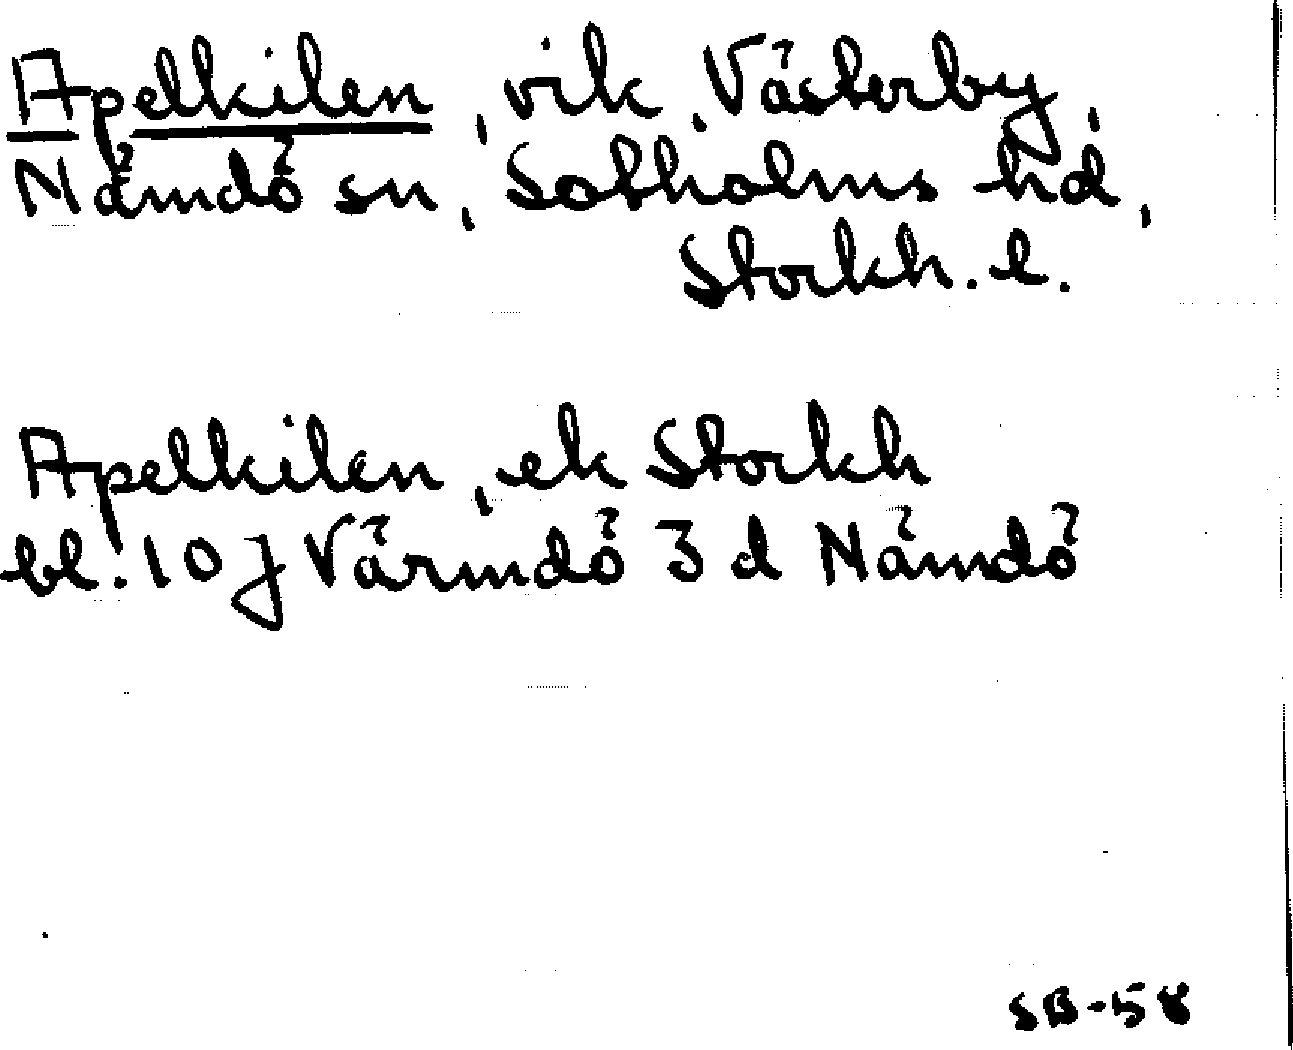 Apelkilen, vik, Västerby,
Nämdö sn, Sotholms hd,
Stockh. l.
Apelkilen, ek Stockh
bl. 10 J Värmdö 3 d Nämdö
SB-58